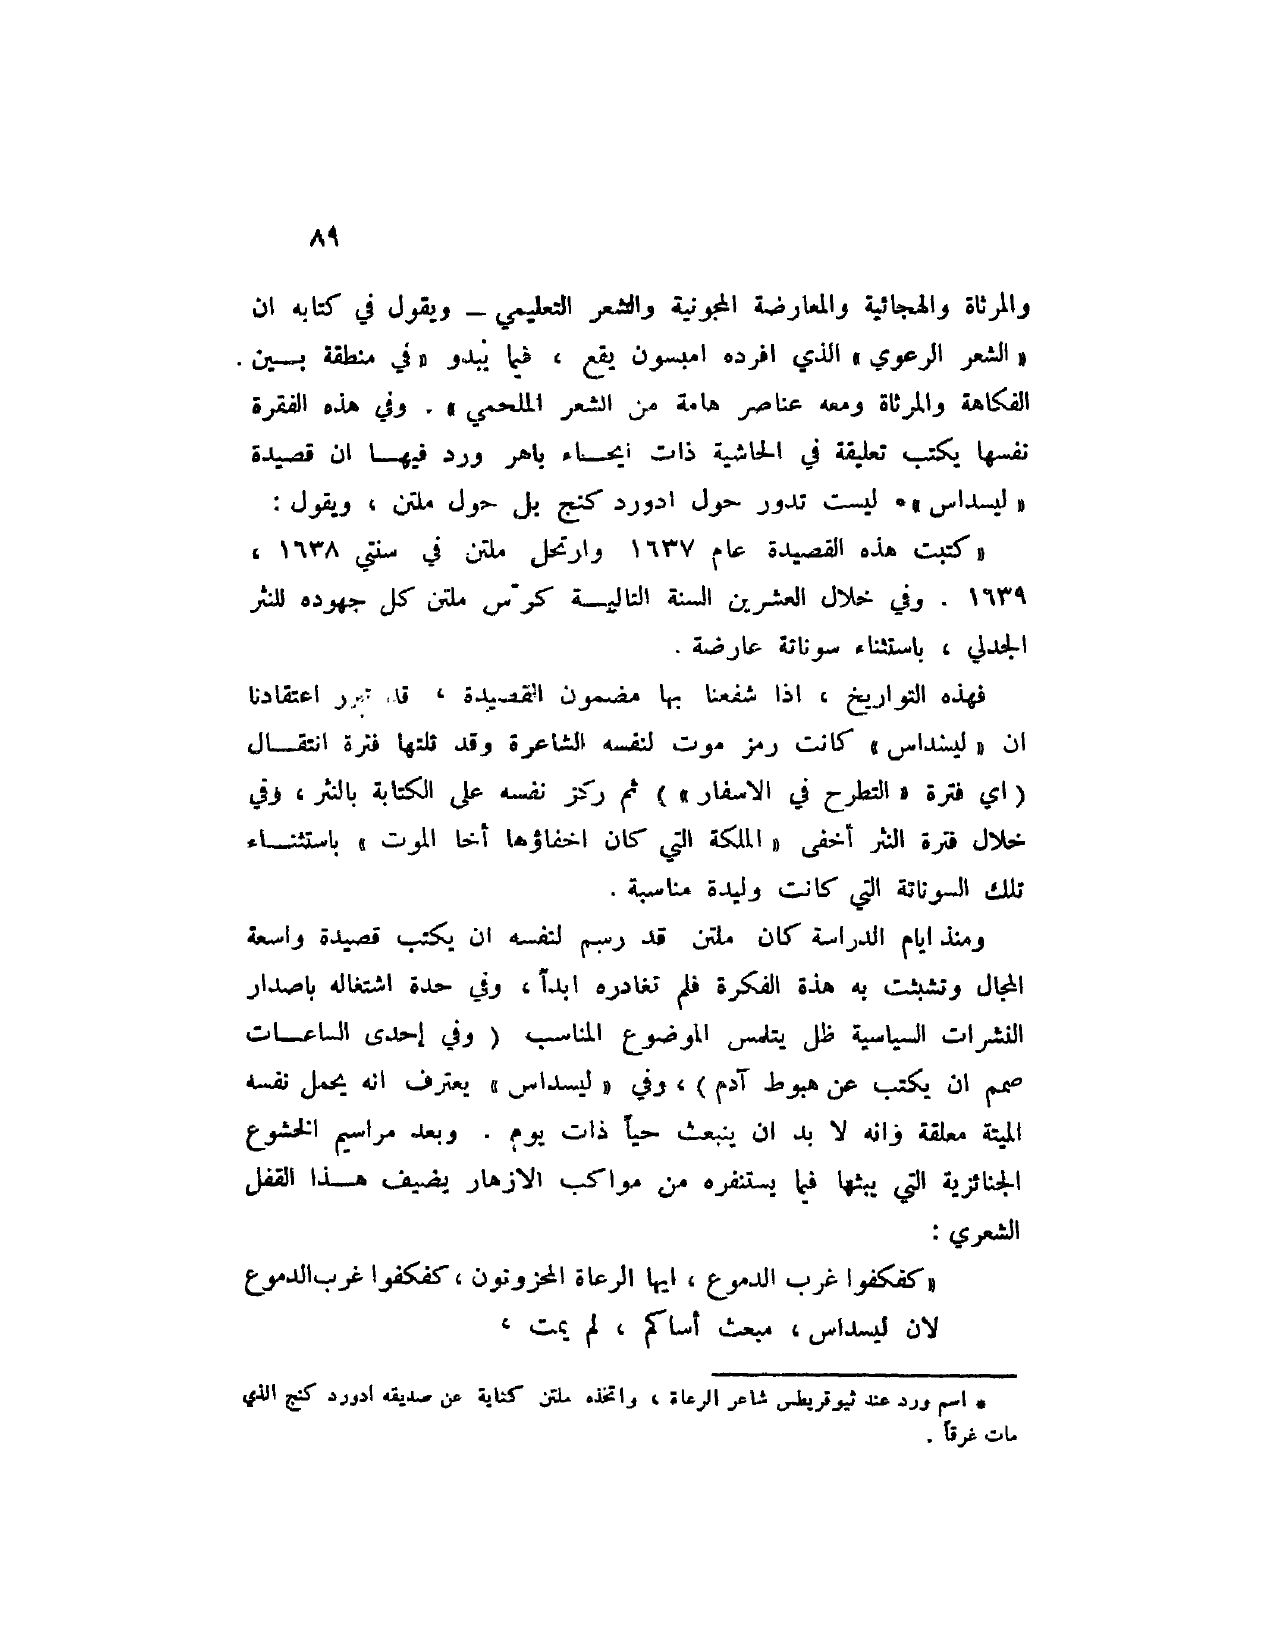 ٨٩
والمرثاة والهجائية والمعارضة المجونية والشعر التعليمي – ويقول في كتابه ان
« الشعر الرعوي » الذي افرده امبسون يقع ، فيما يبدو « في منطقة بــين .
الفكاهة والمرثاة ومعه عناصر هامة من الشعر الملحمي » . وفي هذه الفقرة
نفسها يكتب تعليقة في الحاشية ذات ايحــاء باهر ورد فيهــا ان قصيدة
« ليسداس »* ليست تدور حول ادورد كنج بل حول ملتن ، ويقول :
« كتبت هذه القصيدة عام ١٦٣٧ وارتحل ملتن في سنتي ١٦٣٨ ،
١٦٣٩ . وفي خلال العشرين السنة التاليــة كرّس ملتن كل جهوده للنثر
الجدلي ، باستثناء سوناتة عارضة .
فهذه التواريخ ، اذا شفعنا بها مضمون القصيدة ، قد تبرر اعتقادنا
ان « ليسداس » كانت رمز موت لنفسه الشاعرة وقد ثلتها فترة انتقــال
( اي فترة « التطرح في الاسفار » ) ثم ركز نفسه على الكتابة بالنثر ، وفي
خلال فترة النثر أخفى « الملكة التي كان اخفاؤها أخا الموت » باستثنــاء
تلك السوناتة التي كانت وليدة مناسبة .
ومنذ ايام الدراسة كان ملتن قد رسم لنفسه ان يكتب قصيدة واسعة
المجال وتشبثت به هذة الفكرة فلم تغادره ابداً ، وفي حدة اشتغاله باصدار
النشرات السياسية ظل يتلمس الموضوع المناسب ( وفي إحدى الساعــات
صمم ان يكتب عن هبوط آدم ) ، وفي « ليسداس » يعترف انه يحمل نفسه
الميتة معلقة وانه لا بد ان ينبعث حياً ذات يوم . وبعد مراسيم الخشوع
الجنائزية التي يبثها فيما يستنفره من مواكب الازهار يضيف هــذا القفل
الشعري :
« كفكفوا غرب الدموع ، ايها الرعاة المحزونون ، كفكفوا غرب الدموع
لان ليسداس ، مبعث أساكم ، لم يمت ،
* اسم ورد عند ثيوقريطس شاعر الرعاة ، واتخذه ملتن كناية عن صديقه ادورد كنج الذي
مات غرقاً .